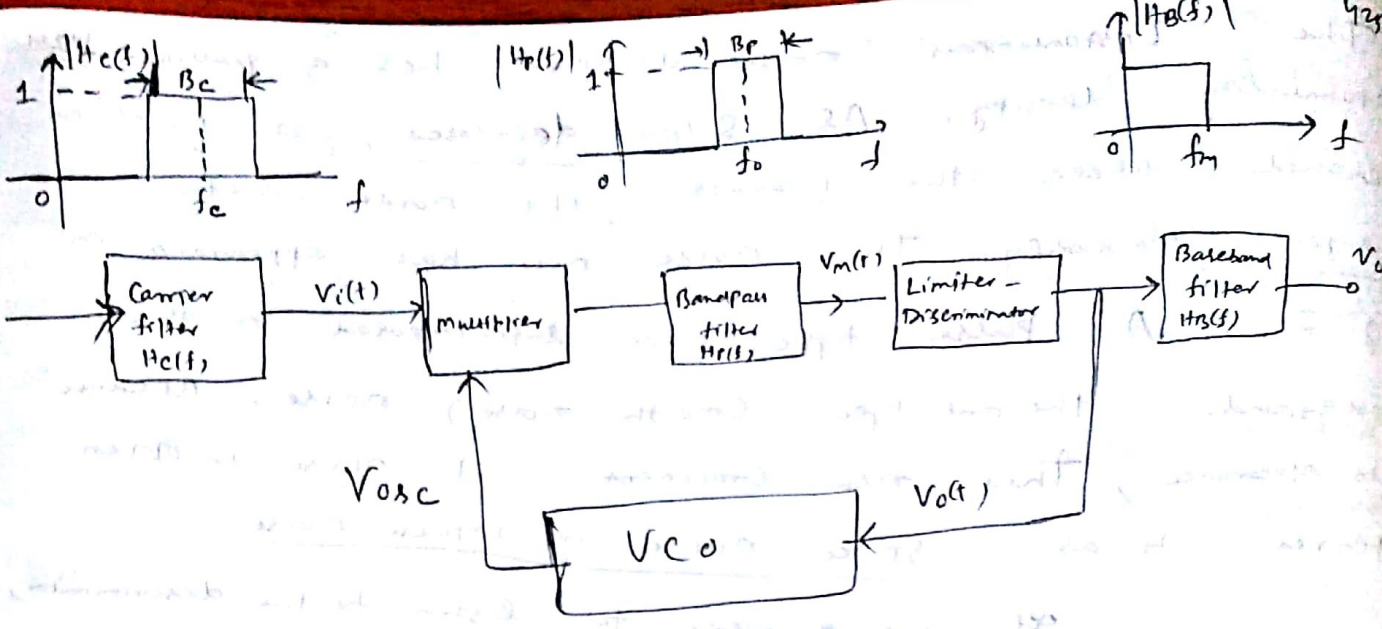 |Hc(f)|
Bc
1
0
fc
f
|Hp(f)|
Bp
1
0
fo
f
|HB(f)|
0
fm
f
Carrier
filter
Hc(f)
Vi(t)
Multiplier
Bandpass
filter
Hp(f)
Vm(t)
Limiter -
Discriminator
Baseband
filter
HB(f)
Vosc
VCO
Vo(t)